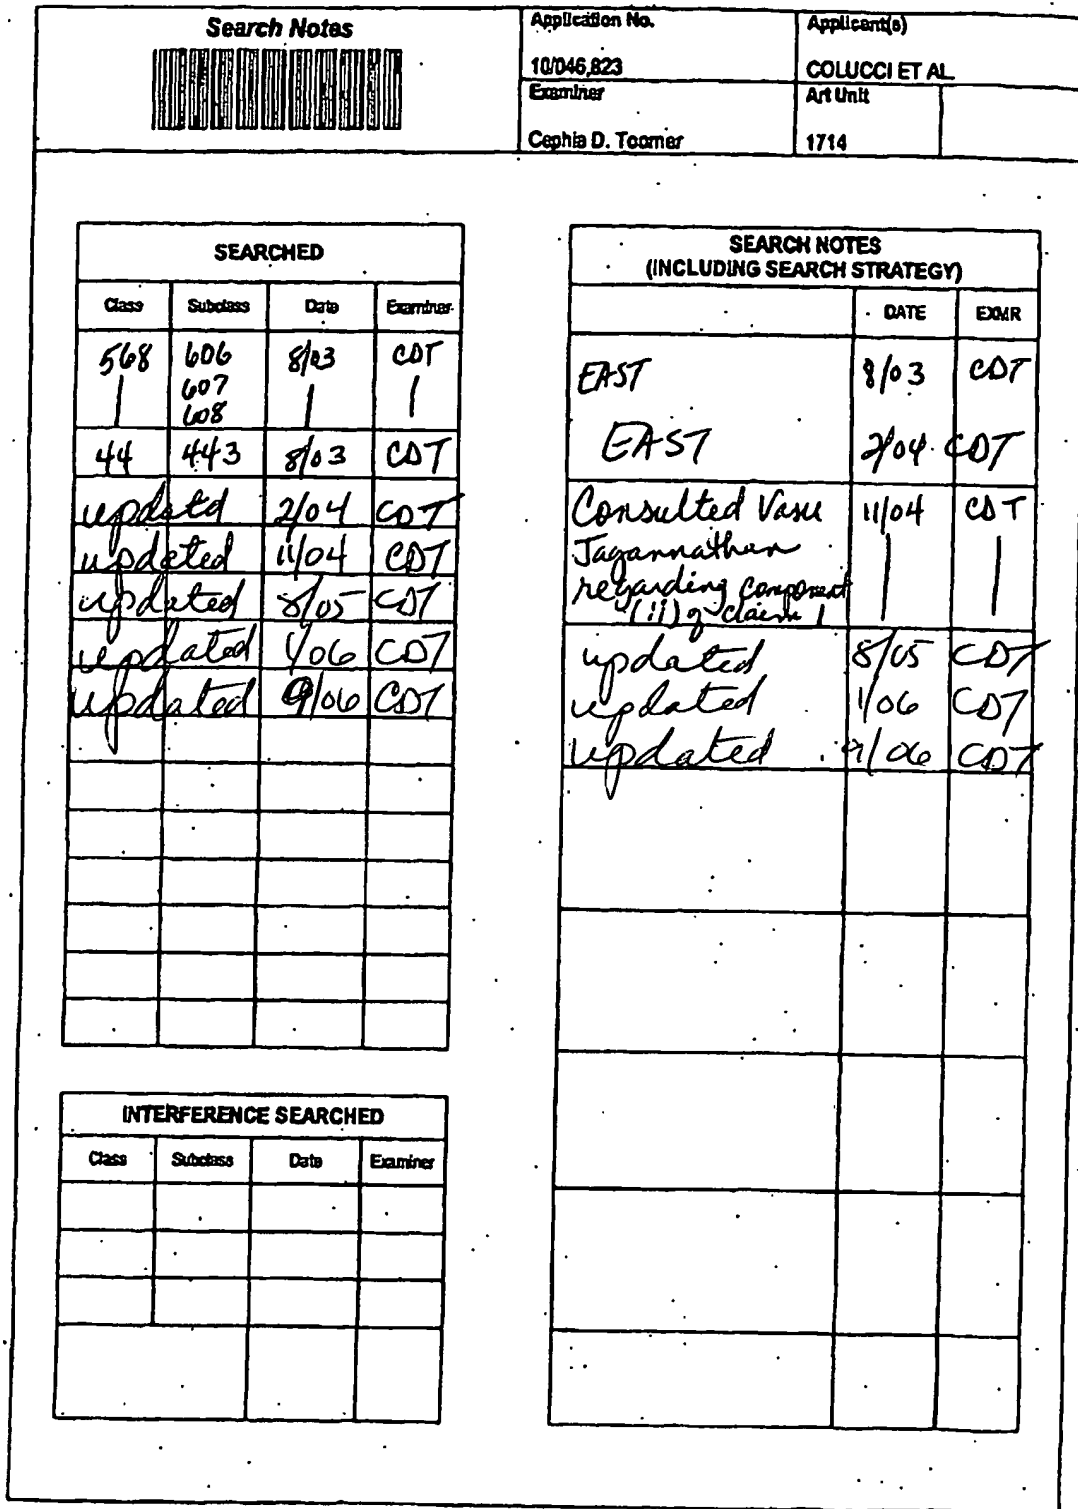 Search Notes
Application No.
Applicant(s)
10/046,823
COLUCCI ET AL.
Examiner
Art Unit
Cephia D. Toomer
1714
SEARCHED
Class Subclass Date Examiner
568 606 8/03 CDT
607
608
44 443 8/03 CDT
updatd 2/04 CDT
updated 11/04 CDT
updated 8/05 CDT
updated 1/06 CDT
updated 9/06 CDT
INTERFERENCE SEARCHED
Class Subclass Date Examiner
SEARCH NOTES
(INCLUDING SEARCH STRATEGY)
DATE EXMR
EAST 8/03 CDT
EAST 2/04 CDT
Consulted Vasu 11/04 CDT
Jagannathan
regarding component
(ii) of claim 1
updated 8/05 CDT
updated 1/06 CDT
updated 9/06 CDT